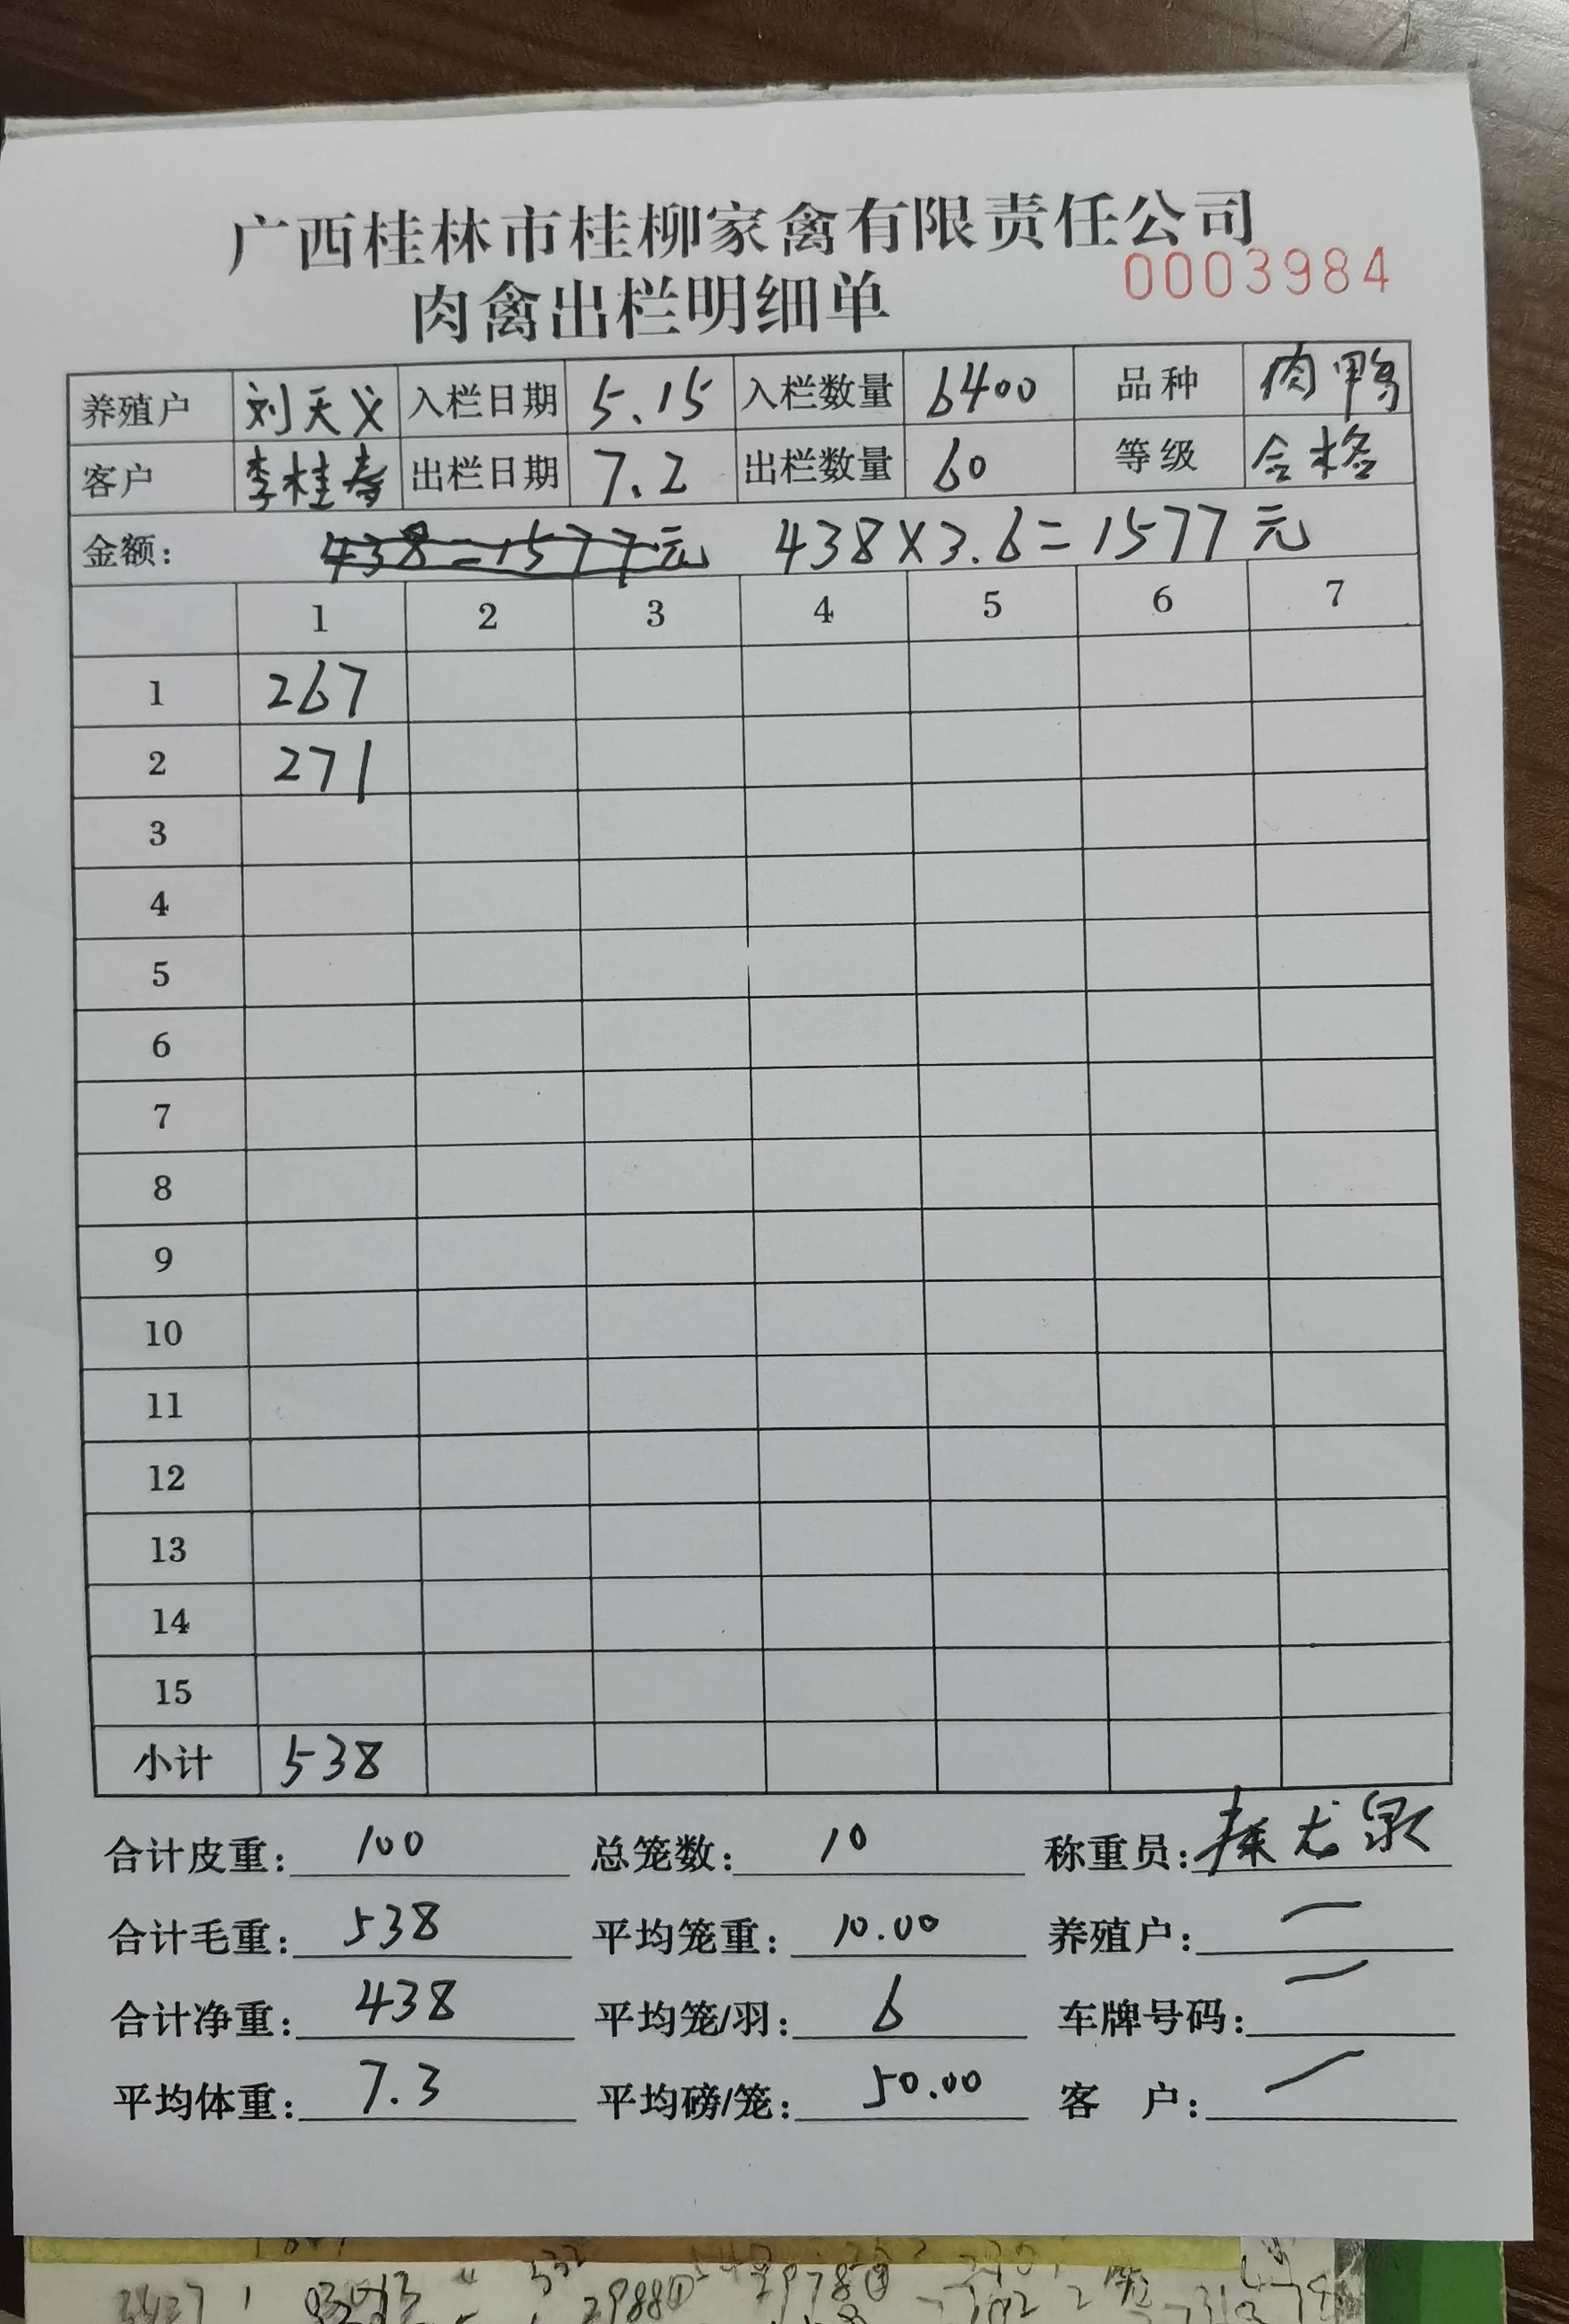 广西桂林市桂柳家禽有限责任公司
0003984
肉禽出栏明细单
养殖户 刘天义 入栏日期 5.15 入栏数量 6400 品种 肉鸭
客户 李桂春 出栏日期 7.2 出栏数量 60 等级 合格
金额: 438=1577元 438×3.6=1577元
1 2 3 4 5 6 7
1 267
2 271
3
4
5
6
7
8
9
10
11
12
13
14
15
小计 538
合计皮重: 100 总笼数: 10 称重员:
合计毛重: 538 平均笼重: 10.00 养殖户:
合计净重: 438 平均笼/羽: 6 车牌号码:
平均体重: 7.3 平均磅/笼: 50.00 客 户: